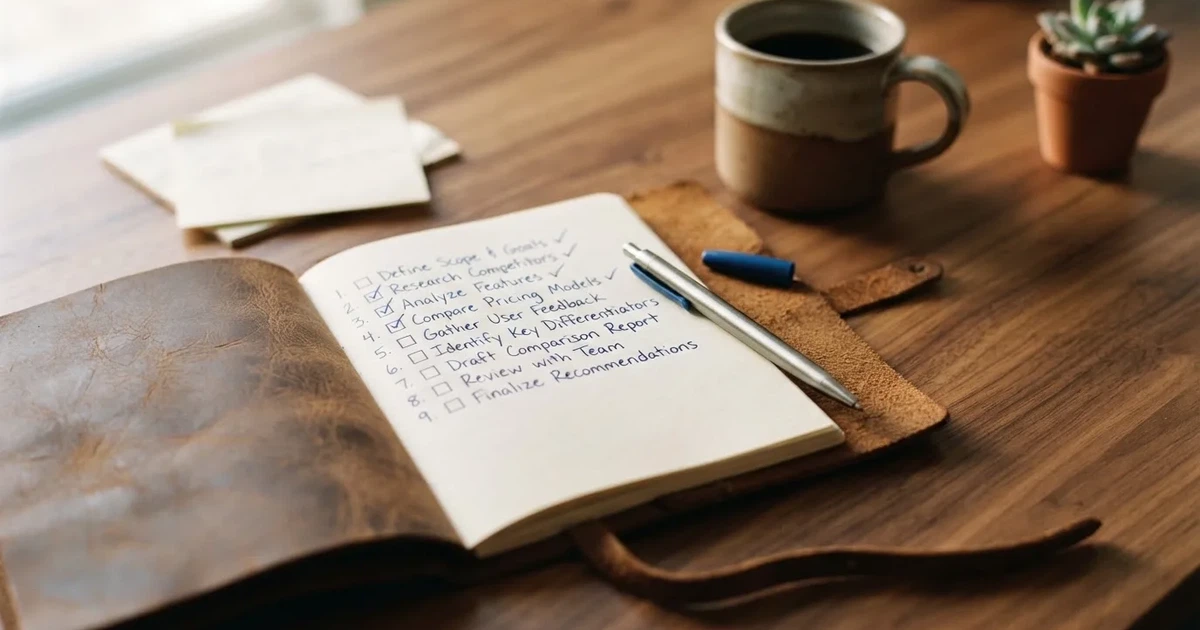 1. ☐ Define Scope & Goals ✓
2. ☑ Research Competitors ✓
3. ☑ Analyze Features ✓
4. ☑ Compare Pricing Models ✓
5. ☐ Gather User Feedback
6. ☐ Identify Key Differentiators
7. ☐ Draft Comparison Report
8. ☐ Review with Team
9. ☐ Finalize Recommendations